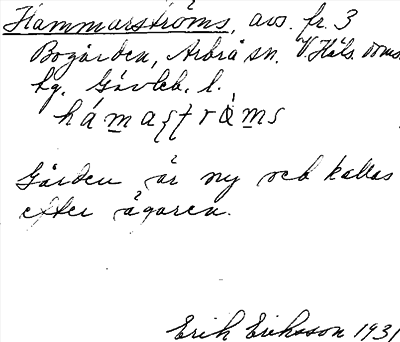 Hammarströms, avs. fr. 3
Bogården, Arbrå sn. V. Häls. doms.
hg. Gävleb. l.
hámaʂtrö̀ms
Gården är ny och kallas
efter ägaren.
Erik Eriksson 1931